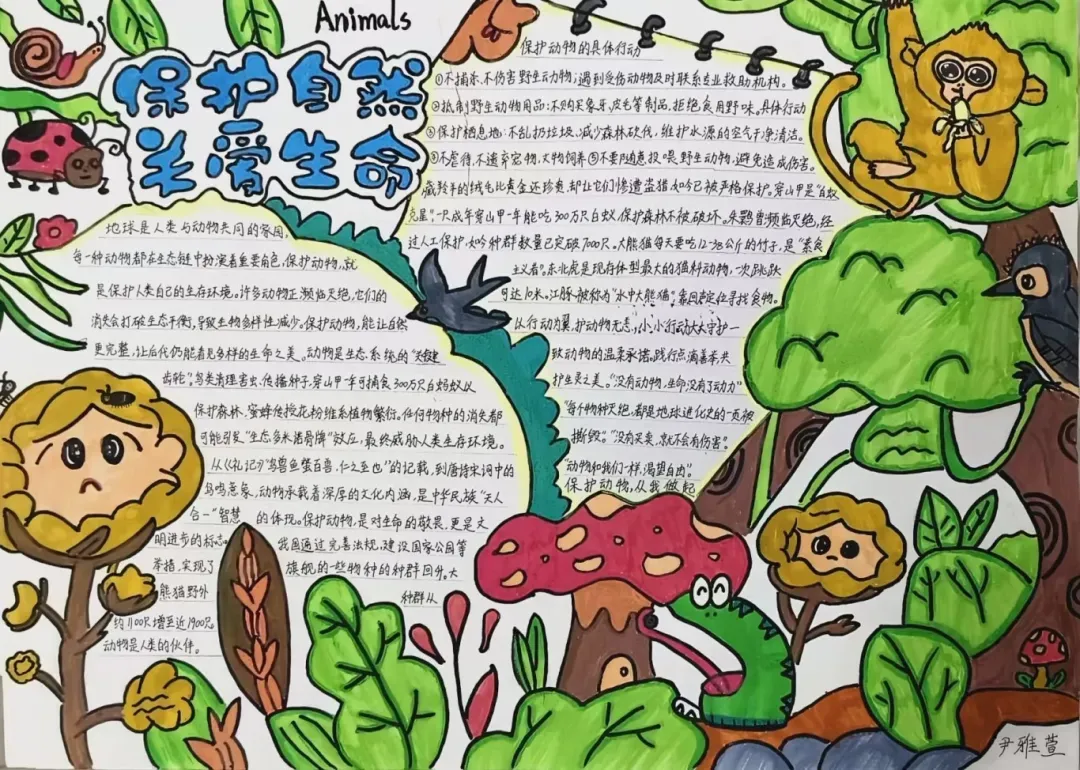 Animals
保护自然
关爱生命
地球是人类与动物共同的家园,
每一种动物都在生态链中扮演着重要角色,保护动物,就
是保护人类自己的生存环境。许多动物正濒临灭绝,它们的
消失会打破生态平衡,导致生物多样性减少。保护动物,能让自然
更完整,让后代仍能看见多样的生命之美。动物是生态系统的"关键
齿轮"。鸟类清理害虫、传播种子,穿山甲一年可捕食300万只白蚂蚁以
保护森林,蜜蜂传授花粉维系植物繁衍。任何物种的消失都
可能引发"生态多米诺骨牌"效应,最终威胁人类生存环境。
从《礼记》"鸟兽鱼蛋百兽,仁之至也"的记载,到唐诗宋词中的
鸟鸣意象,动物承载着深厚的文化内涵,是中华民族"天人
合一"智慧 的体现。保护动物,是对生命的敬畏,更是文
明进步的标志。 我国通过完善法规,建设国家公园等
举措,实现了 旗舰的一些物种的种群回升。大
熊猫野外 种群从
约1100只增至近1900只。
动物是人类的伙伴。
保护动物的具体行动
①不捕杀、不伤害野生动物;遇到受伤动物及时联系专业救助机构。
②抵制野生动物用品:不购买象牙、皮毛等制品,拒绝食用野味。具体行动
③保护栖息地:不乱扔垃圾、减少森林砍伐,维护水源的空气干净清洁。
④不虐待、不遗弃宠物,文物饲养⑤不要随意投喂野生动物,避免造成伤害。
藏羚羊的绒毛比黄金还珍贵,却让它们惨遭盗猎,如今已被严格保护。穿山甲是"白蚁
克星",一只成年穿山甲一年能吃300万只白蚁,保护森林不被破坏。朱鹮曾频临灭绝,经
过人工保护,如今种群数量已突破7000只。大熊猫每天要吃12-38公斤的竹子,是"素食
主义者"。东北虎是现存体型最大的猫科动物,一次跳跃
可达10米。江豚被称为"水中大熊猫",靠回声定位寻找食物。
以行动为翼,护动物无恙,小小行动大大守护一
致动物的温柔承诺,践行点滴善举共
护生灵之美。"没有动物,生命没有了动力"
"每个物种灭绝,都是地球进化史的一页被
撕毁"。"没有买卖,就不会有伤害"。
"动物和我们一样,渴望自由"。
保护动物,从我做起
尹雅萱